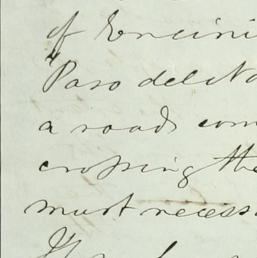 of Encini
"Paso del No
a road com
crossing the
must necess